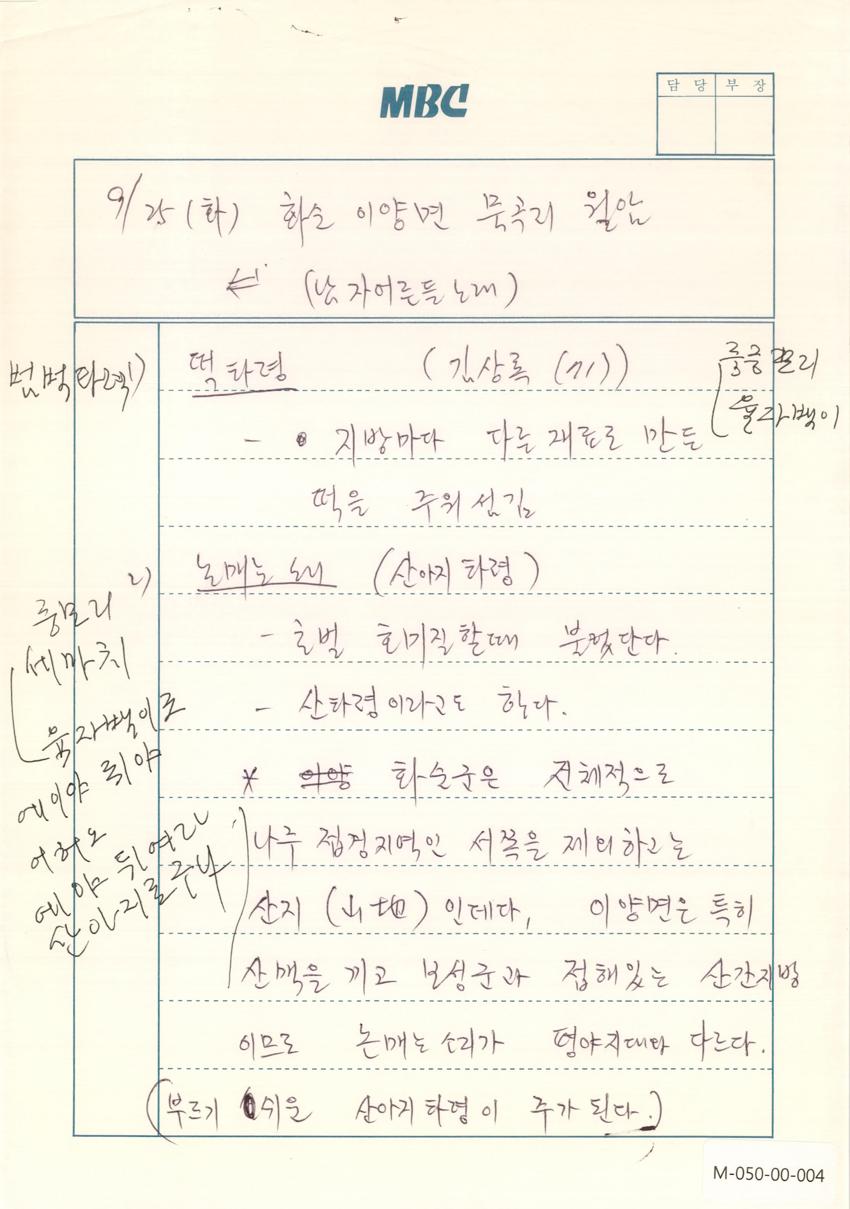 MBC
담 당 부 장
9/25 (화) 화순 이양면 묵곡리 월암
⇐ (남자어른들 노래)
1) 떡타령 (김상록 (71))
중중몰이
육자백이
- 지방마다 다른 재료로 만든
떡을 주워섬김
2) 논매는 소리 (산아지 타령)
중모리
세마치
육자백이로
에이야 뒤야
어허오
에야 뒤여라
산아지로구나
- 호벌 호미질할때 불렀단다.
- 산타령이라고도 한다.
* 이양 화순군은 전체적으로
나주 접경지역인 서쪽을 제외하고는
산지 (山地) 인데다, 이양면은 특히
산맥을 끼고 보성군과 접해있는 산간지방
이므로 논매는 소리가 평야지대와 다르다.
(부르기 쉬운 산아지타령이 주가 된다.)
M-050-00-004